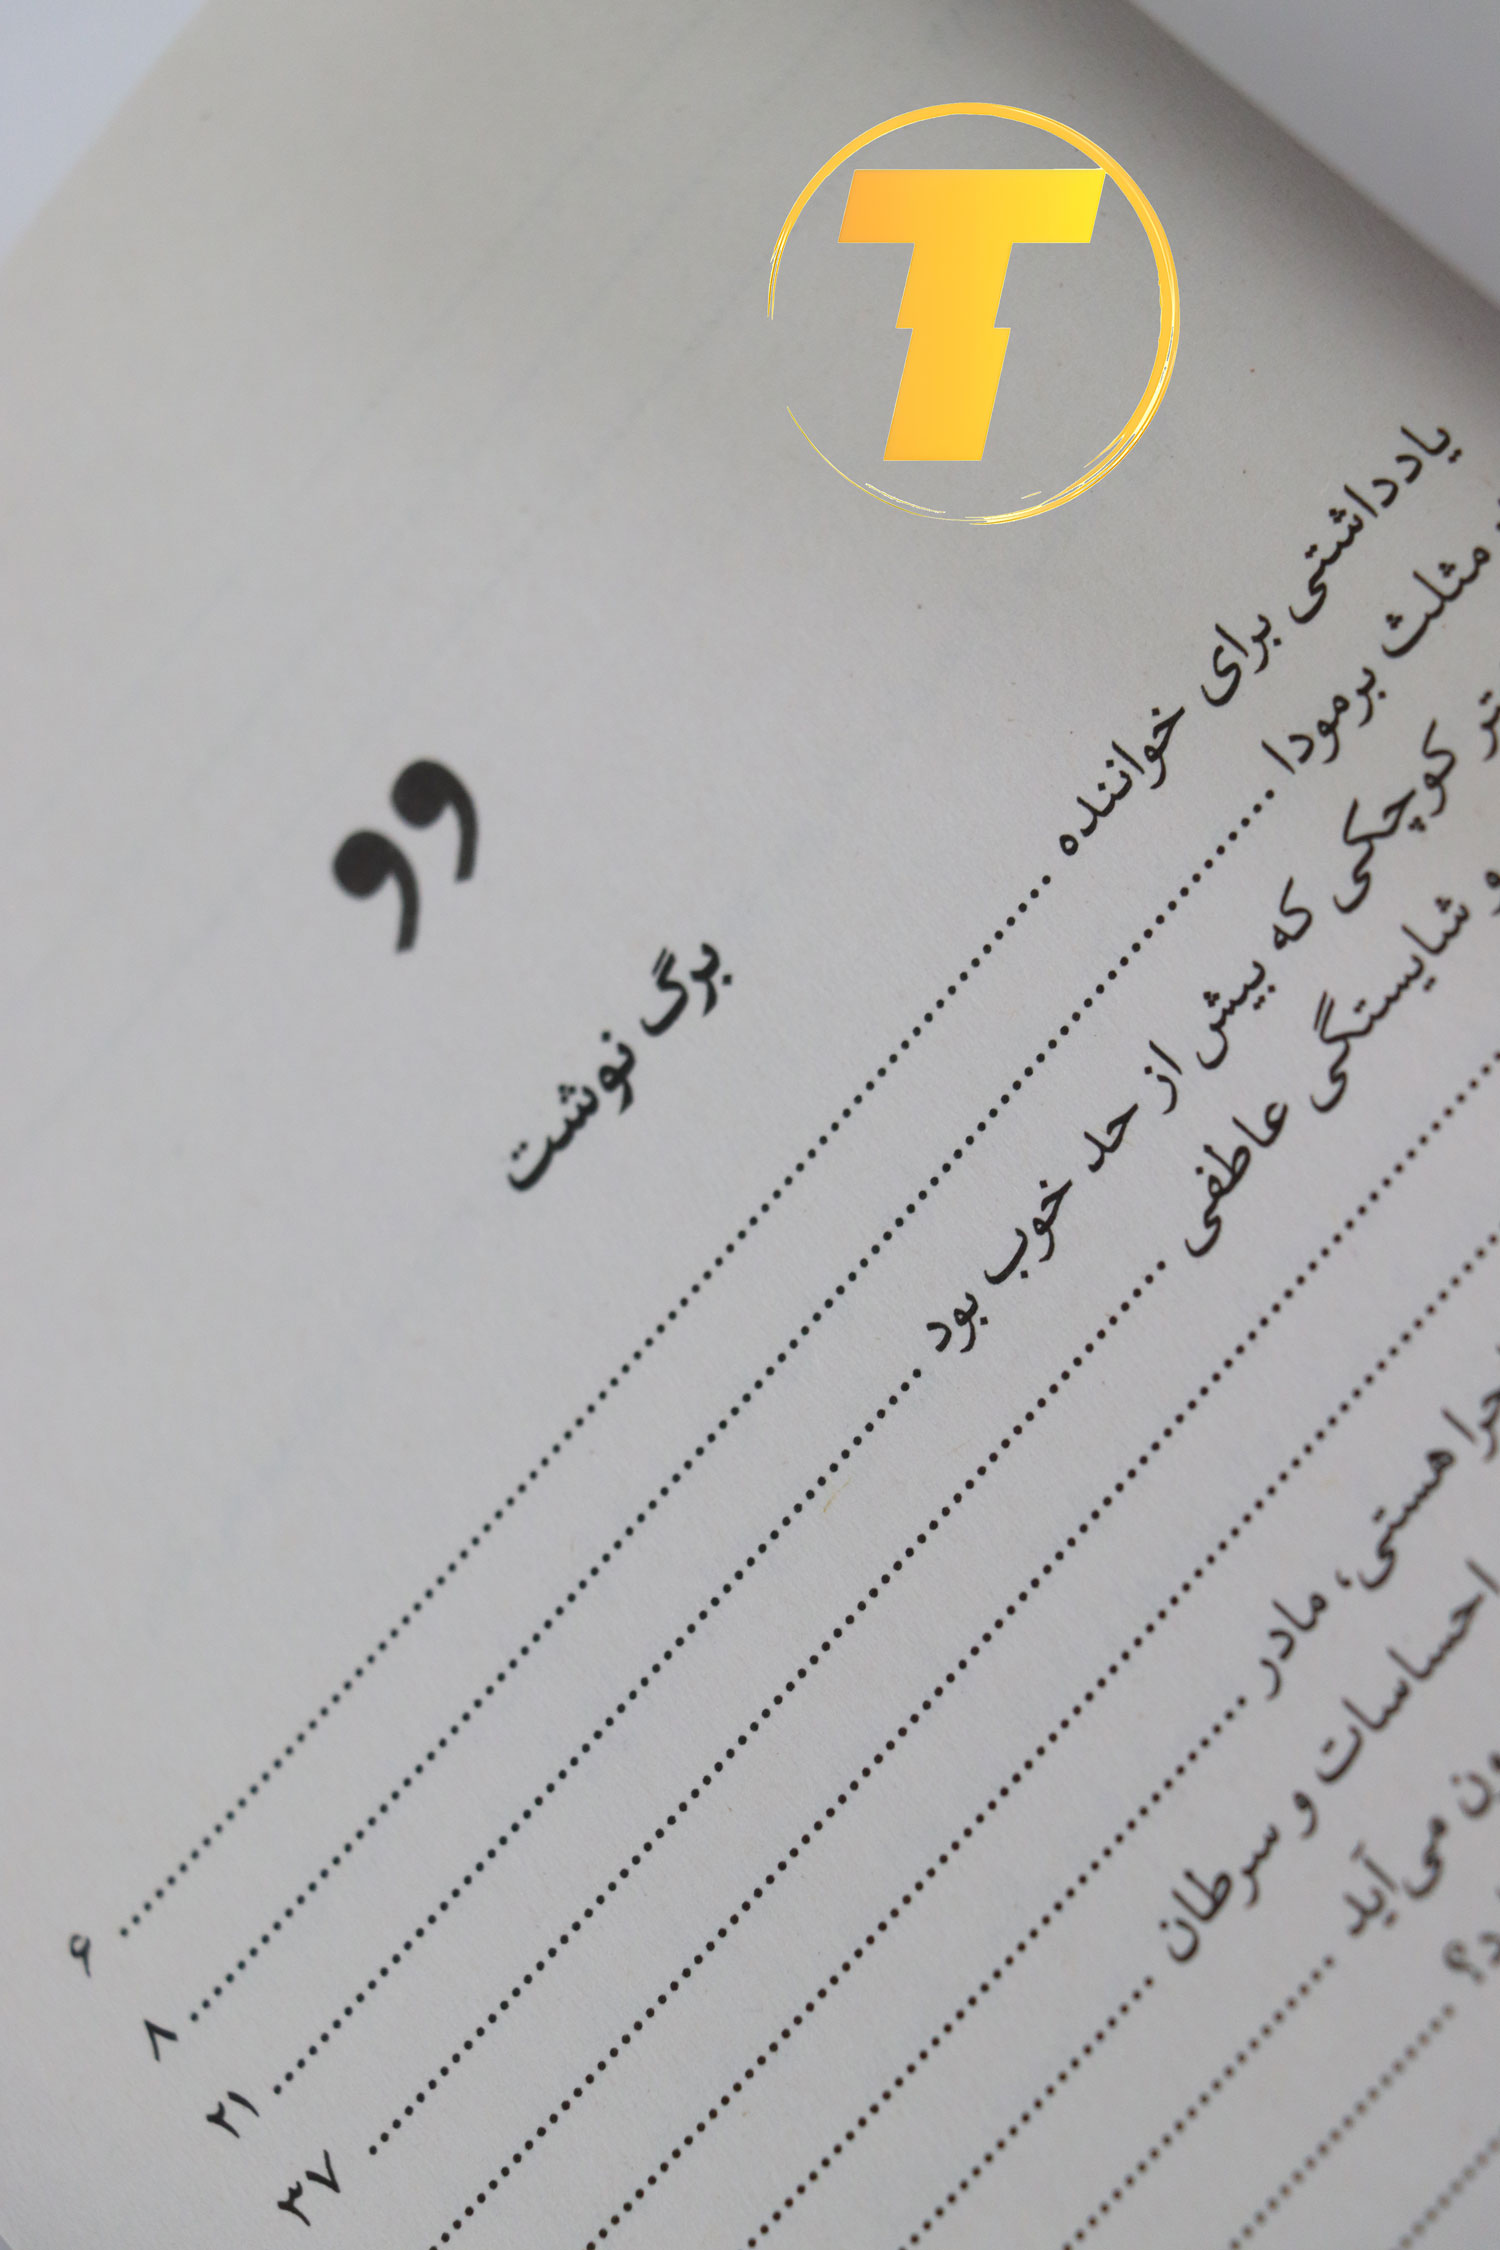 T
برگ نوشت
یادداشتی برای خواننده ........ ۶
مثلث برمودا ........ ۸
کوچکی که بیش از حد خوب بود ........ ۲۱
و شایستگی عاطفی ........ ۳۷
هستی، مادر ........
احساسات و سرطان ........
می‌آید ........